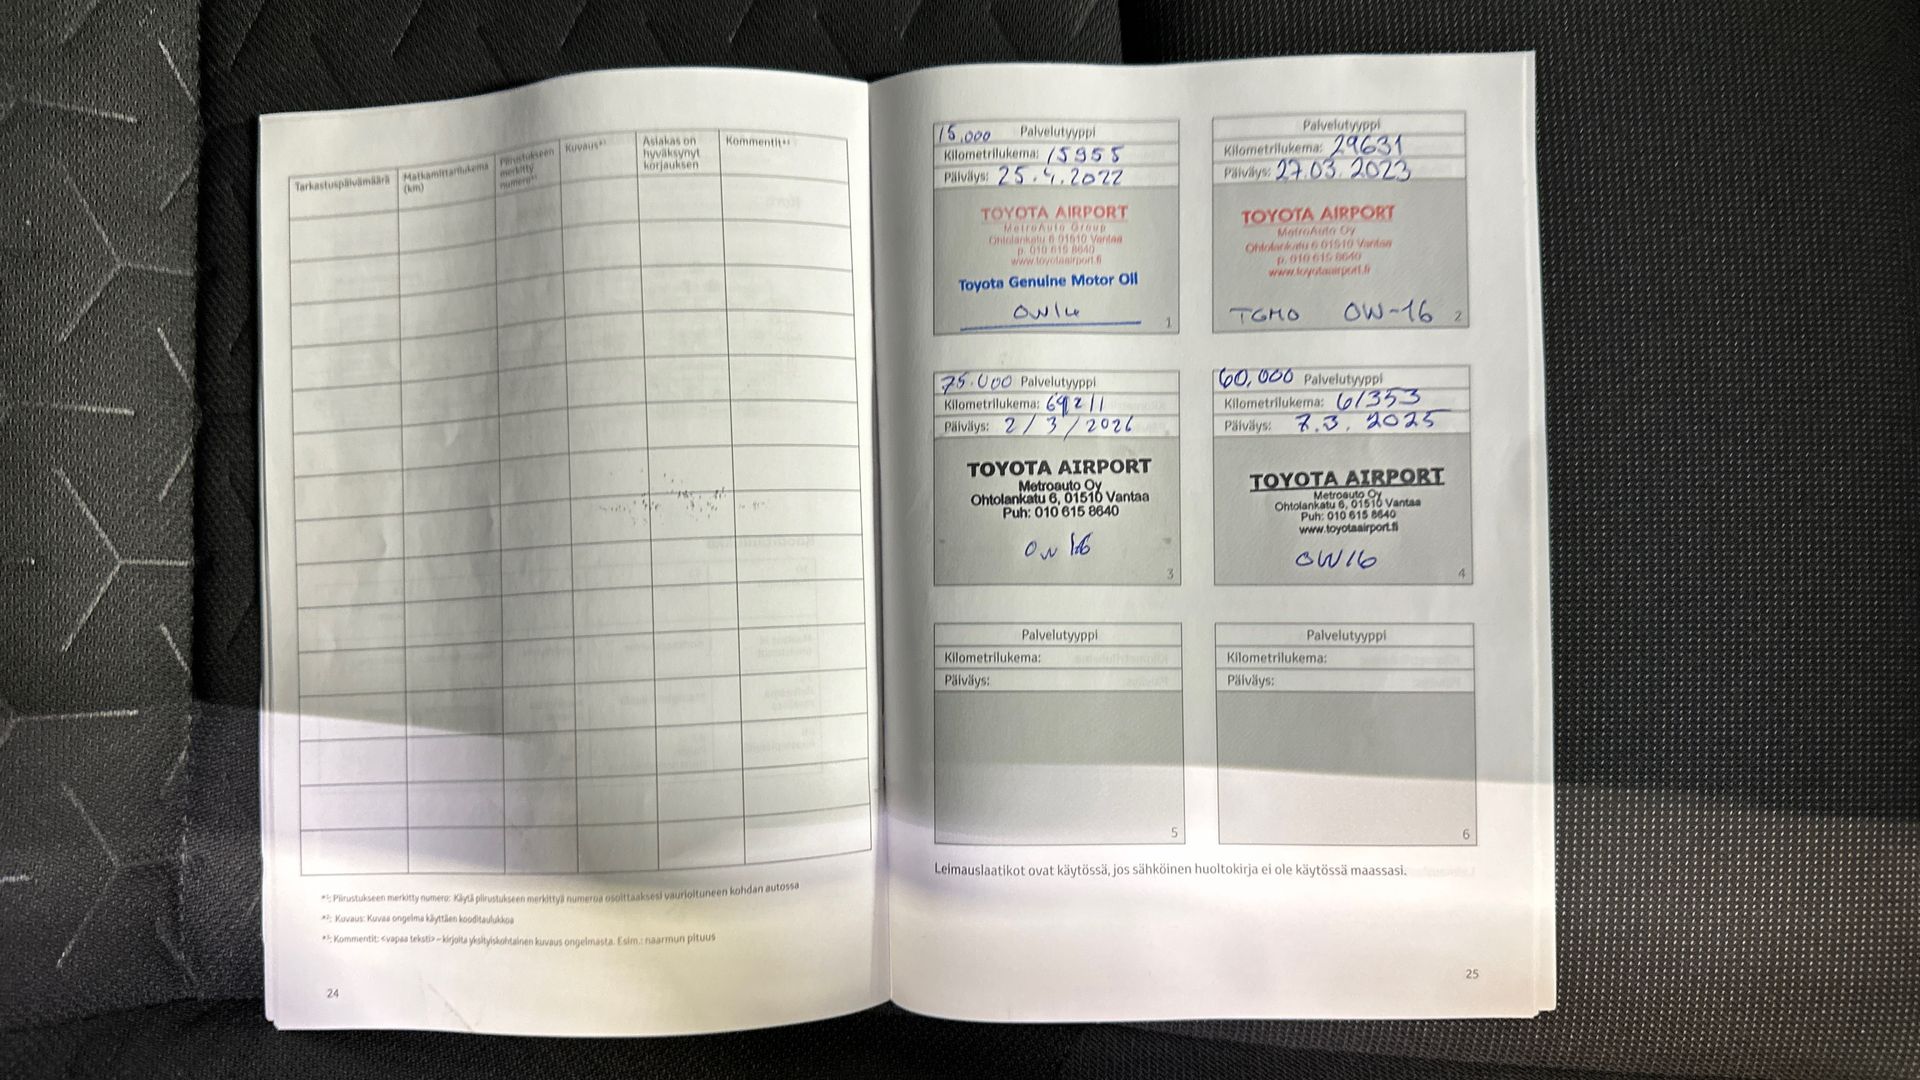 Tarkastuspäivämäärä
Matkamittarilukema (km)
Piirustukseen merkitty numero*¹
Kuvaus*²
Asiakas on hyväksynyt korjauksen
Kommentit*³
*¹: Piirustukseen merkitty numero: Käytä piirustukseen merkittyä numeroa osoittaaksesi vaurioituneen kohdan autossa
*²: Kuvaus: Kuvaa ongelma käyttäen kooditaulukkoa
*³: Kommentit: <vapaa teksti> – kirjoita yksityiskohtainen kuvaus ongelmasta. Esim.: naarmun pituus
24
15,000 Palvelutyyppi
Kilometrilukema: 15955
Päiväys: 25.4.2022
TOYOTA AIRPORT
MetroAuto Group
Ohtolankatu 6 01510 Vantaa
p. 010 615 8640
www.toyotaairport.fi
Toyota Genuine Motor Oil
1
Palvelutyyppi
Kilometrilukema: 29631
Päiväys: 27.03.2023
TOYOTA AIRPORT
MetroAuto Oy
Ohtolankatu 6 01510 Vantaa
p. 010 615 8640
www.toyotaairport.fi
TGMO 0W-16
2
75.000 Palvelutyyppi
Kilometrilukema: 69211
Päiväys: 2/3/2026
TOYOTA AIRPORT
Metroauto Oy
Ohtolankatu 6, 01510 Vantaa
Puh: 010 615 8640
0W 16
3
60,000 Palvelutyyppi
Kilometrilukema: 61353
Päiväys: 7.3.2025
TOYOTA AIRPORT
Metroauto Oy
Ohtolankatu 6, 01510 Vantaa
Puh: 010 615 8640
www.toyotaairport.fi
0W16
4
Palvelutyyppi
Kilometrilukema:
Päiväys:
5
Palvelutyyppi
Kilometrilukema:
Päiväys:
6
Leimauslaatikot ovat käytössä, jos sähköinen huoltokirja ei ole käytössä maassasi.
25